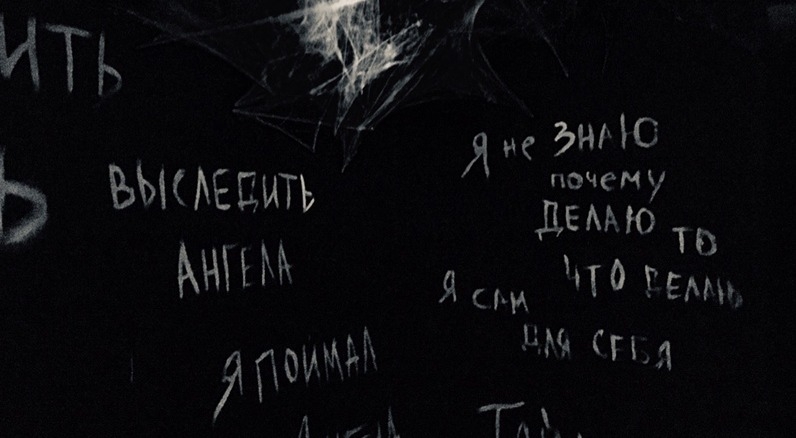 ИТЬ
Ь
ВЫСЛЕДИТЬ
АНГЕЛА
Я ПОЙМАЛ
Я не ЗНАЮ
почему
ДЕЛАЮ ТО
ЧТО ДЕЛАЮ
Я САМ
ДЛЯ СЕБЯ